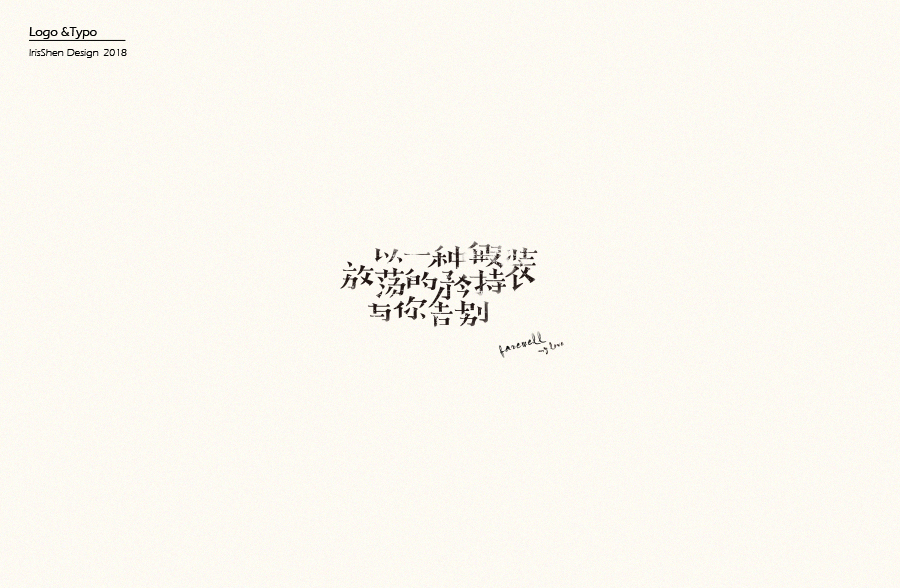 Logo &Typo
IrisShen Design 2018
以一种假装
放荡的矜持
与你告别
farewell
my love